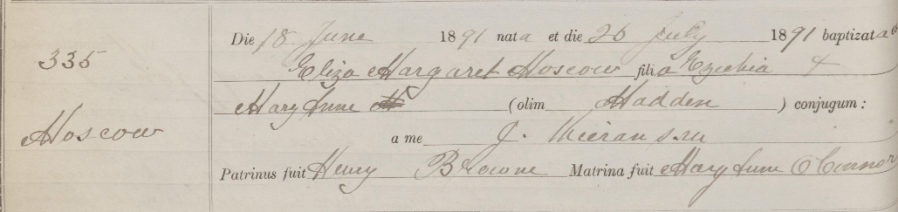 335
Moscow
Die 18 June 1891 nata et die 26 July 1891 baptizata e
Eliza Margaret Moscow filia Ezechia +
Mary Anne (olim Madden) conjugum:
a me J.
Patrinus fuit Henry Browne Matrina fuit Mary Anne O'Connor